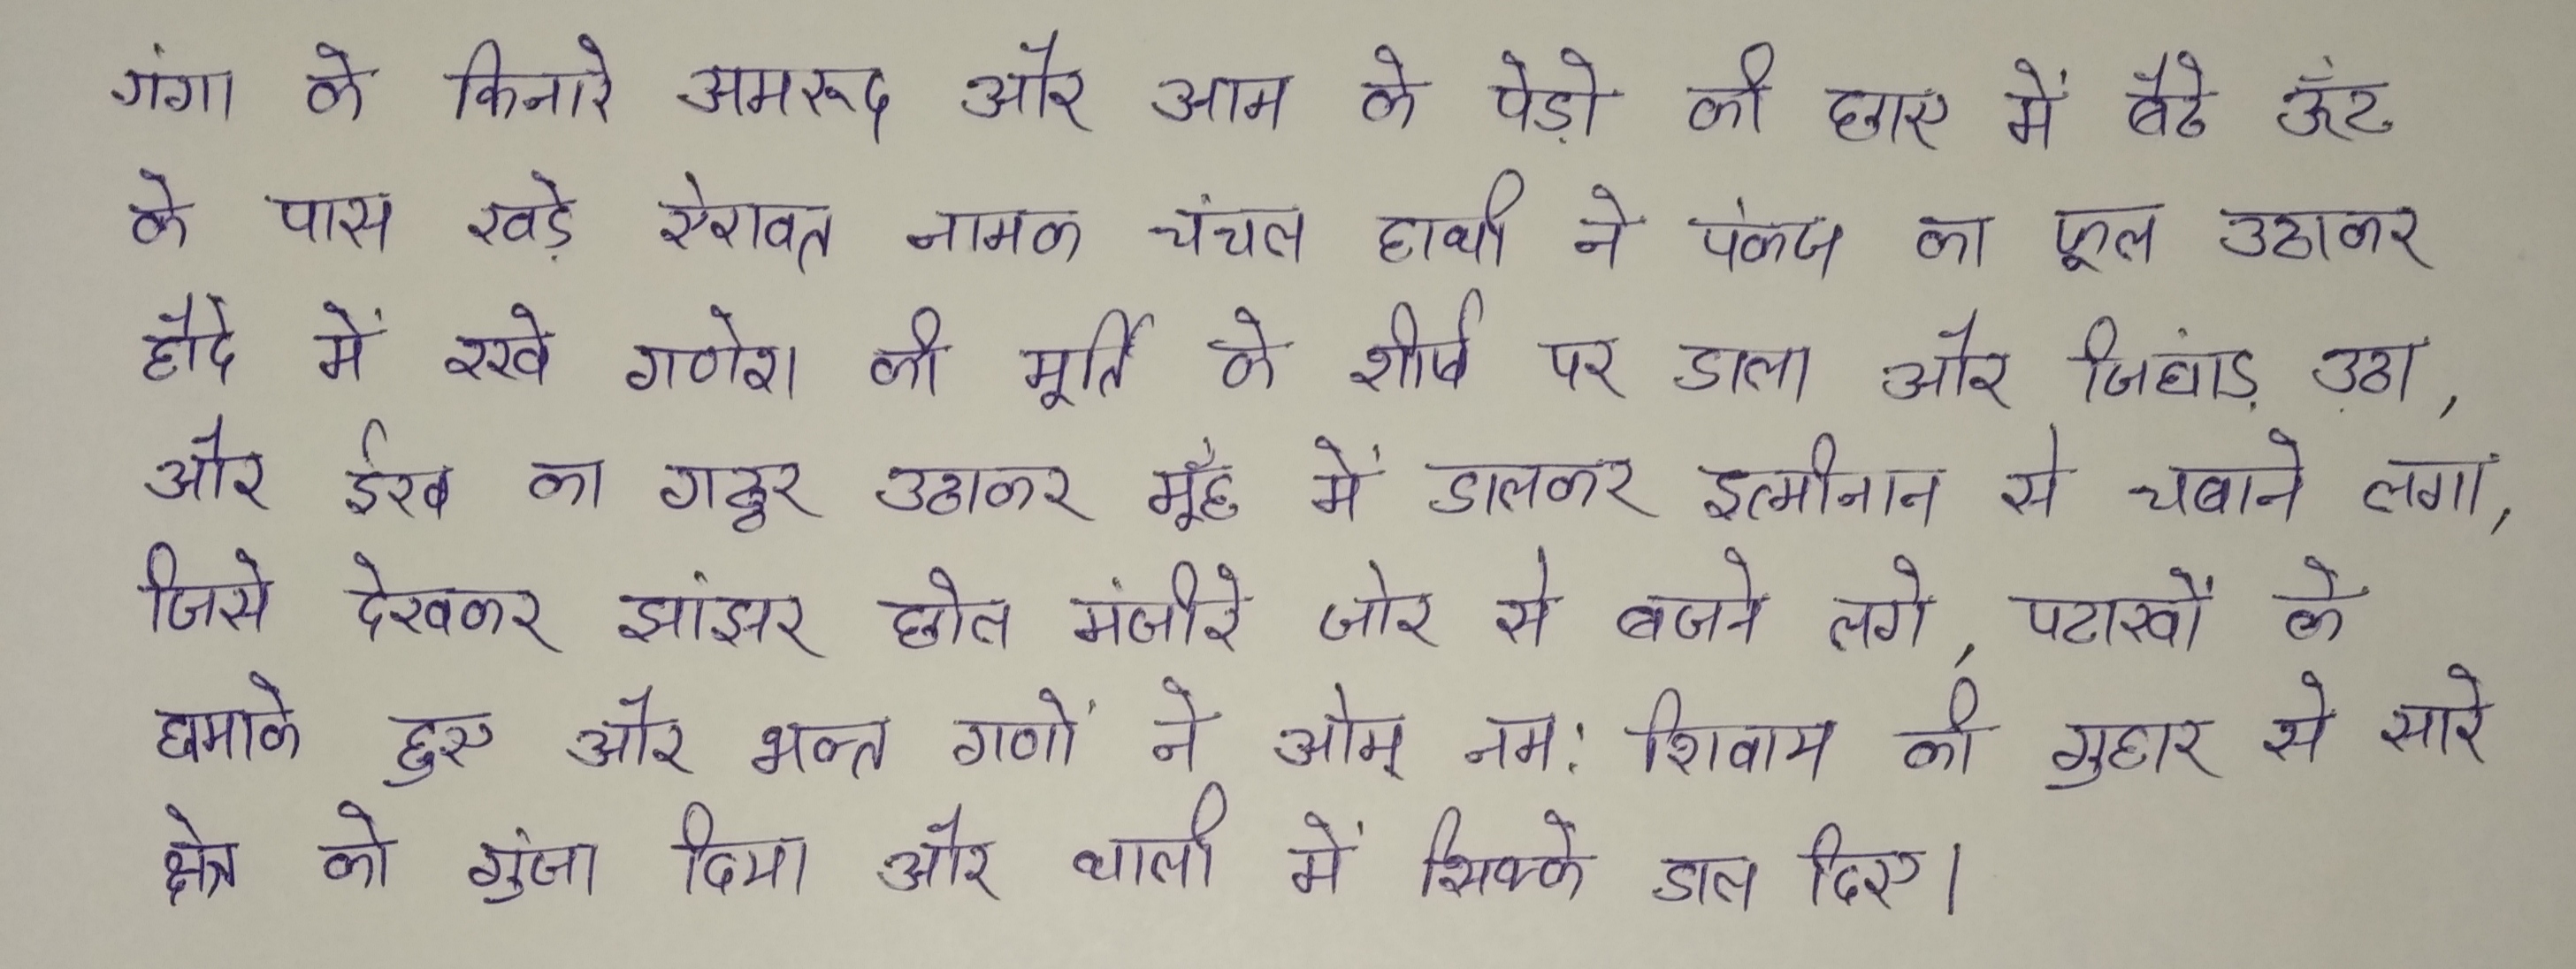 गंगा के किनारे अमरूद और आम के पेड़ो की छाए में बैठे ऊँट
के पास खड़े ऐरावत नामक चंचल हाथी ने पंकज का फूल उठाकर
हौदे में रखे गणेश की मूर्ति के शीर्ष पर डाला और जिघांड़ उठा,
और ईख का गट्ठर उठाकर मूँह में डालकर इत्मीनान से चबाने लगा,
जिसे देखकर झांझर ढोल मंजीरे जोर से बजने लगे, पटाखों के
धमाके हुए और भक्त गणों ने ओम् नम: शिवाय की गुहार से सारे
क्षेत्र को गुंजा दिया और थाली में सिक्के डाल दिए।